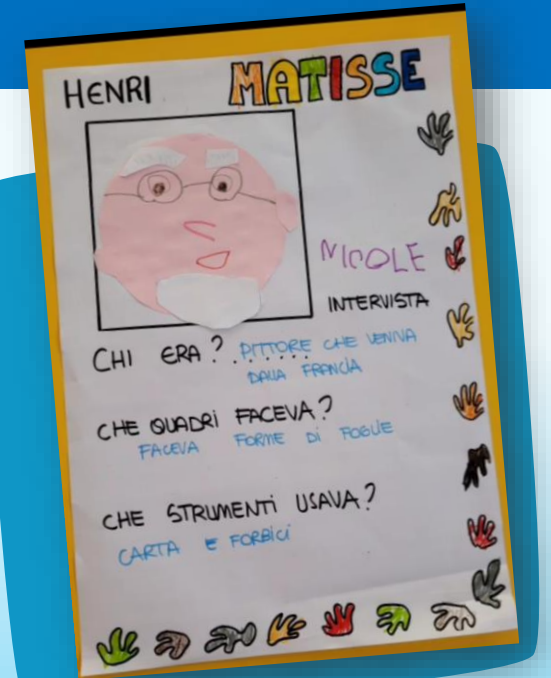 HENRI MATISSE
NICOLE
INTERVISTA
CHI ERA? PITTORE CHE VENIVA
DALLA FRANCIA
CHE QUADRI FACEVA?
FACEVA FORME DI FOGLIE
CHE STRUMENTI USAVA?
CARTA E FORBICI